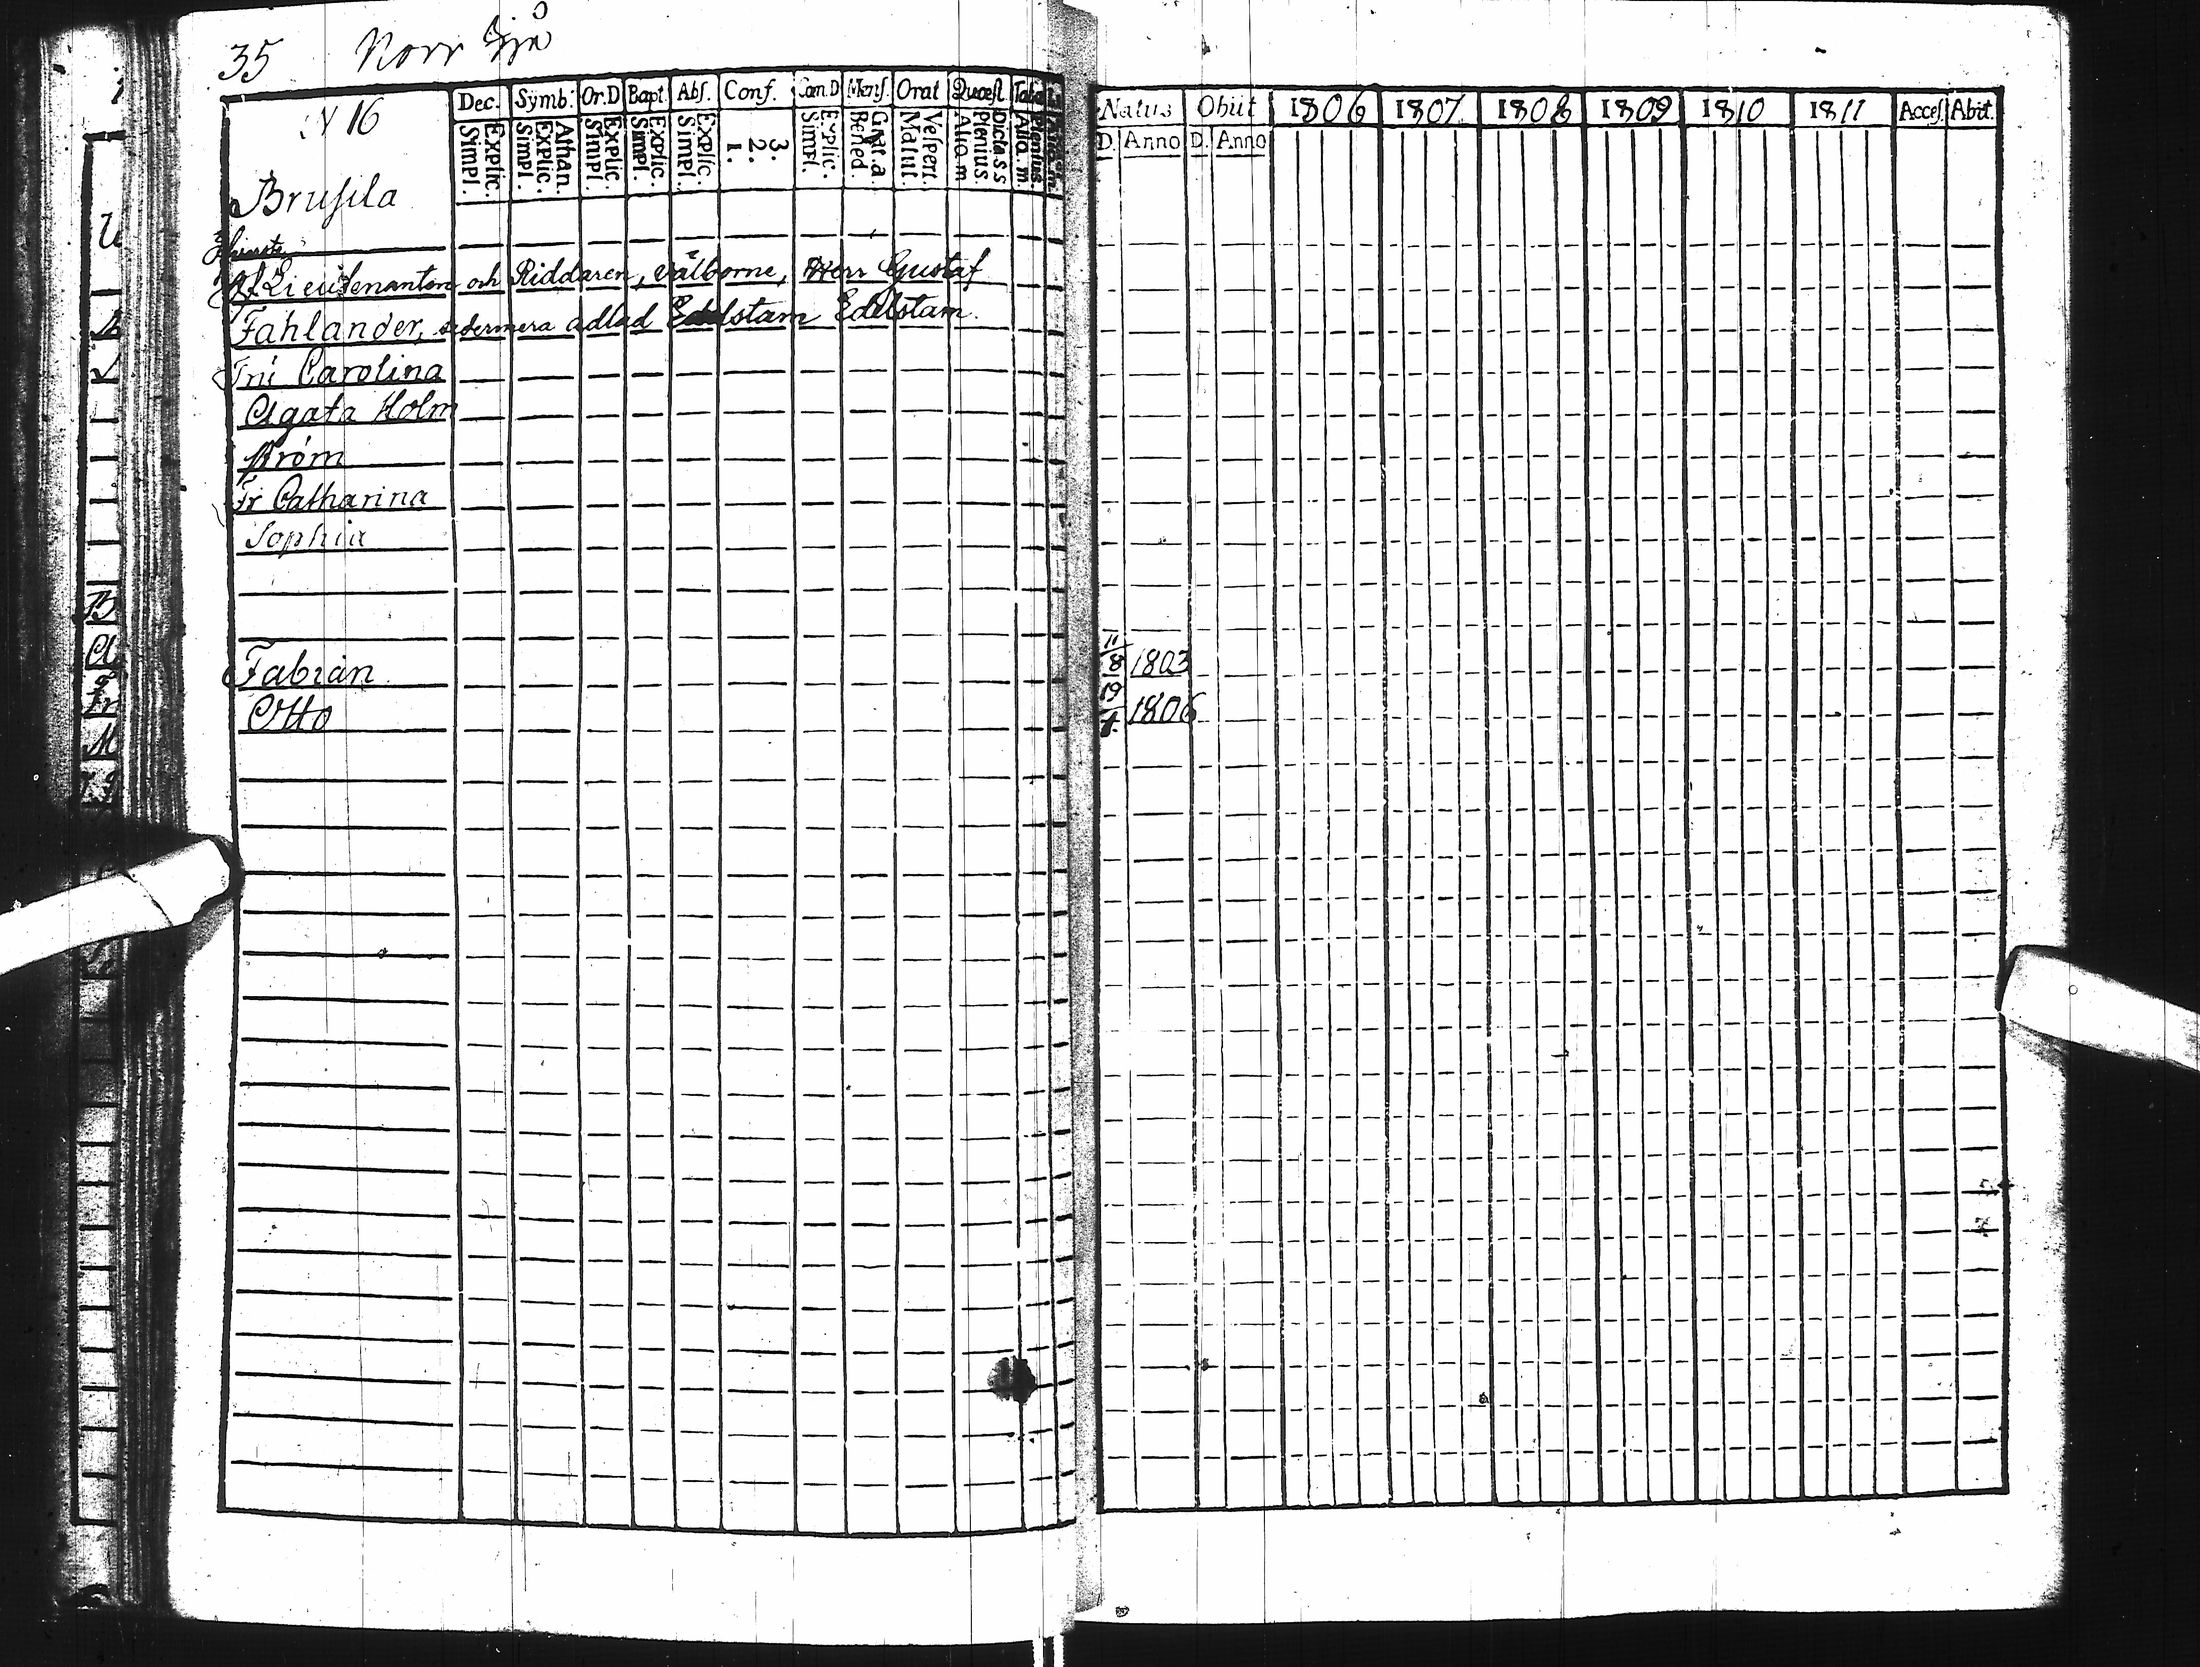 35 Norr Sjö
Dec. Symb. Or.D Bapt. Abſ. Conf. Com.D Menſ. Orat Quæſt.
N 16
Explic. Simpl. Athan. Explic. Simpl. Explic. Simpl. Explic. Simpl. Explic. Simpl. 3. 2. 1. Explic. Simpl. Grat. a Bened. Veſpert. Matut. Dicta. S S Plenius. Aliq. m Plenius. Aliq. m.
Bruſila
Öf. Lieutenanten och Riddaren, välborne, Herr Gustaf
Fahlander, sedermera adlad Edelstam Edelstam.
Fru Carolina
Agata Holm
ström
Fr Catharina
Sophia
Fabian
Otto
Natus Obiit 1806 1807 1808 1809 1810 1811 Acceſ. Abiit.
D. Anno D. Anno
11/8 1803
29/4. 1806
B
A
Fr
M